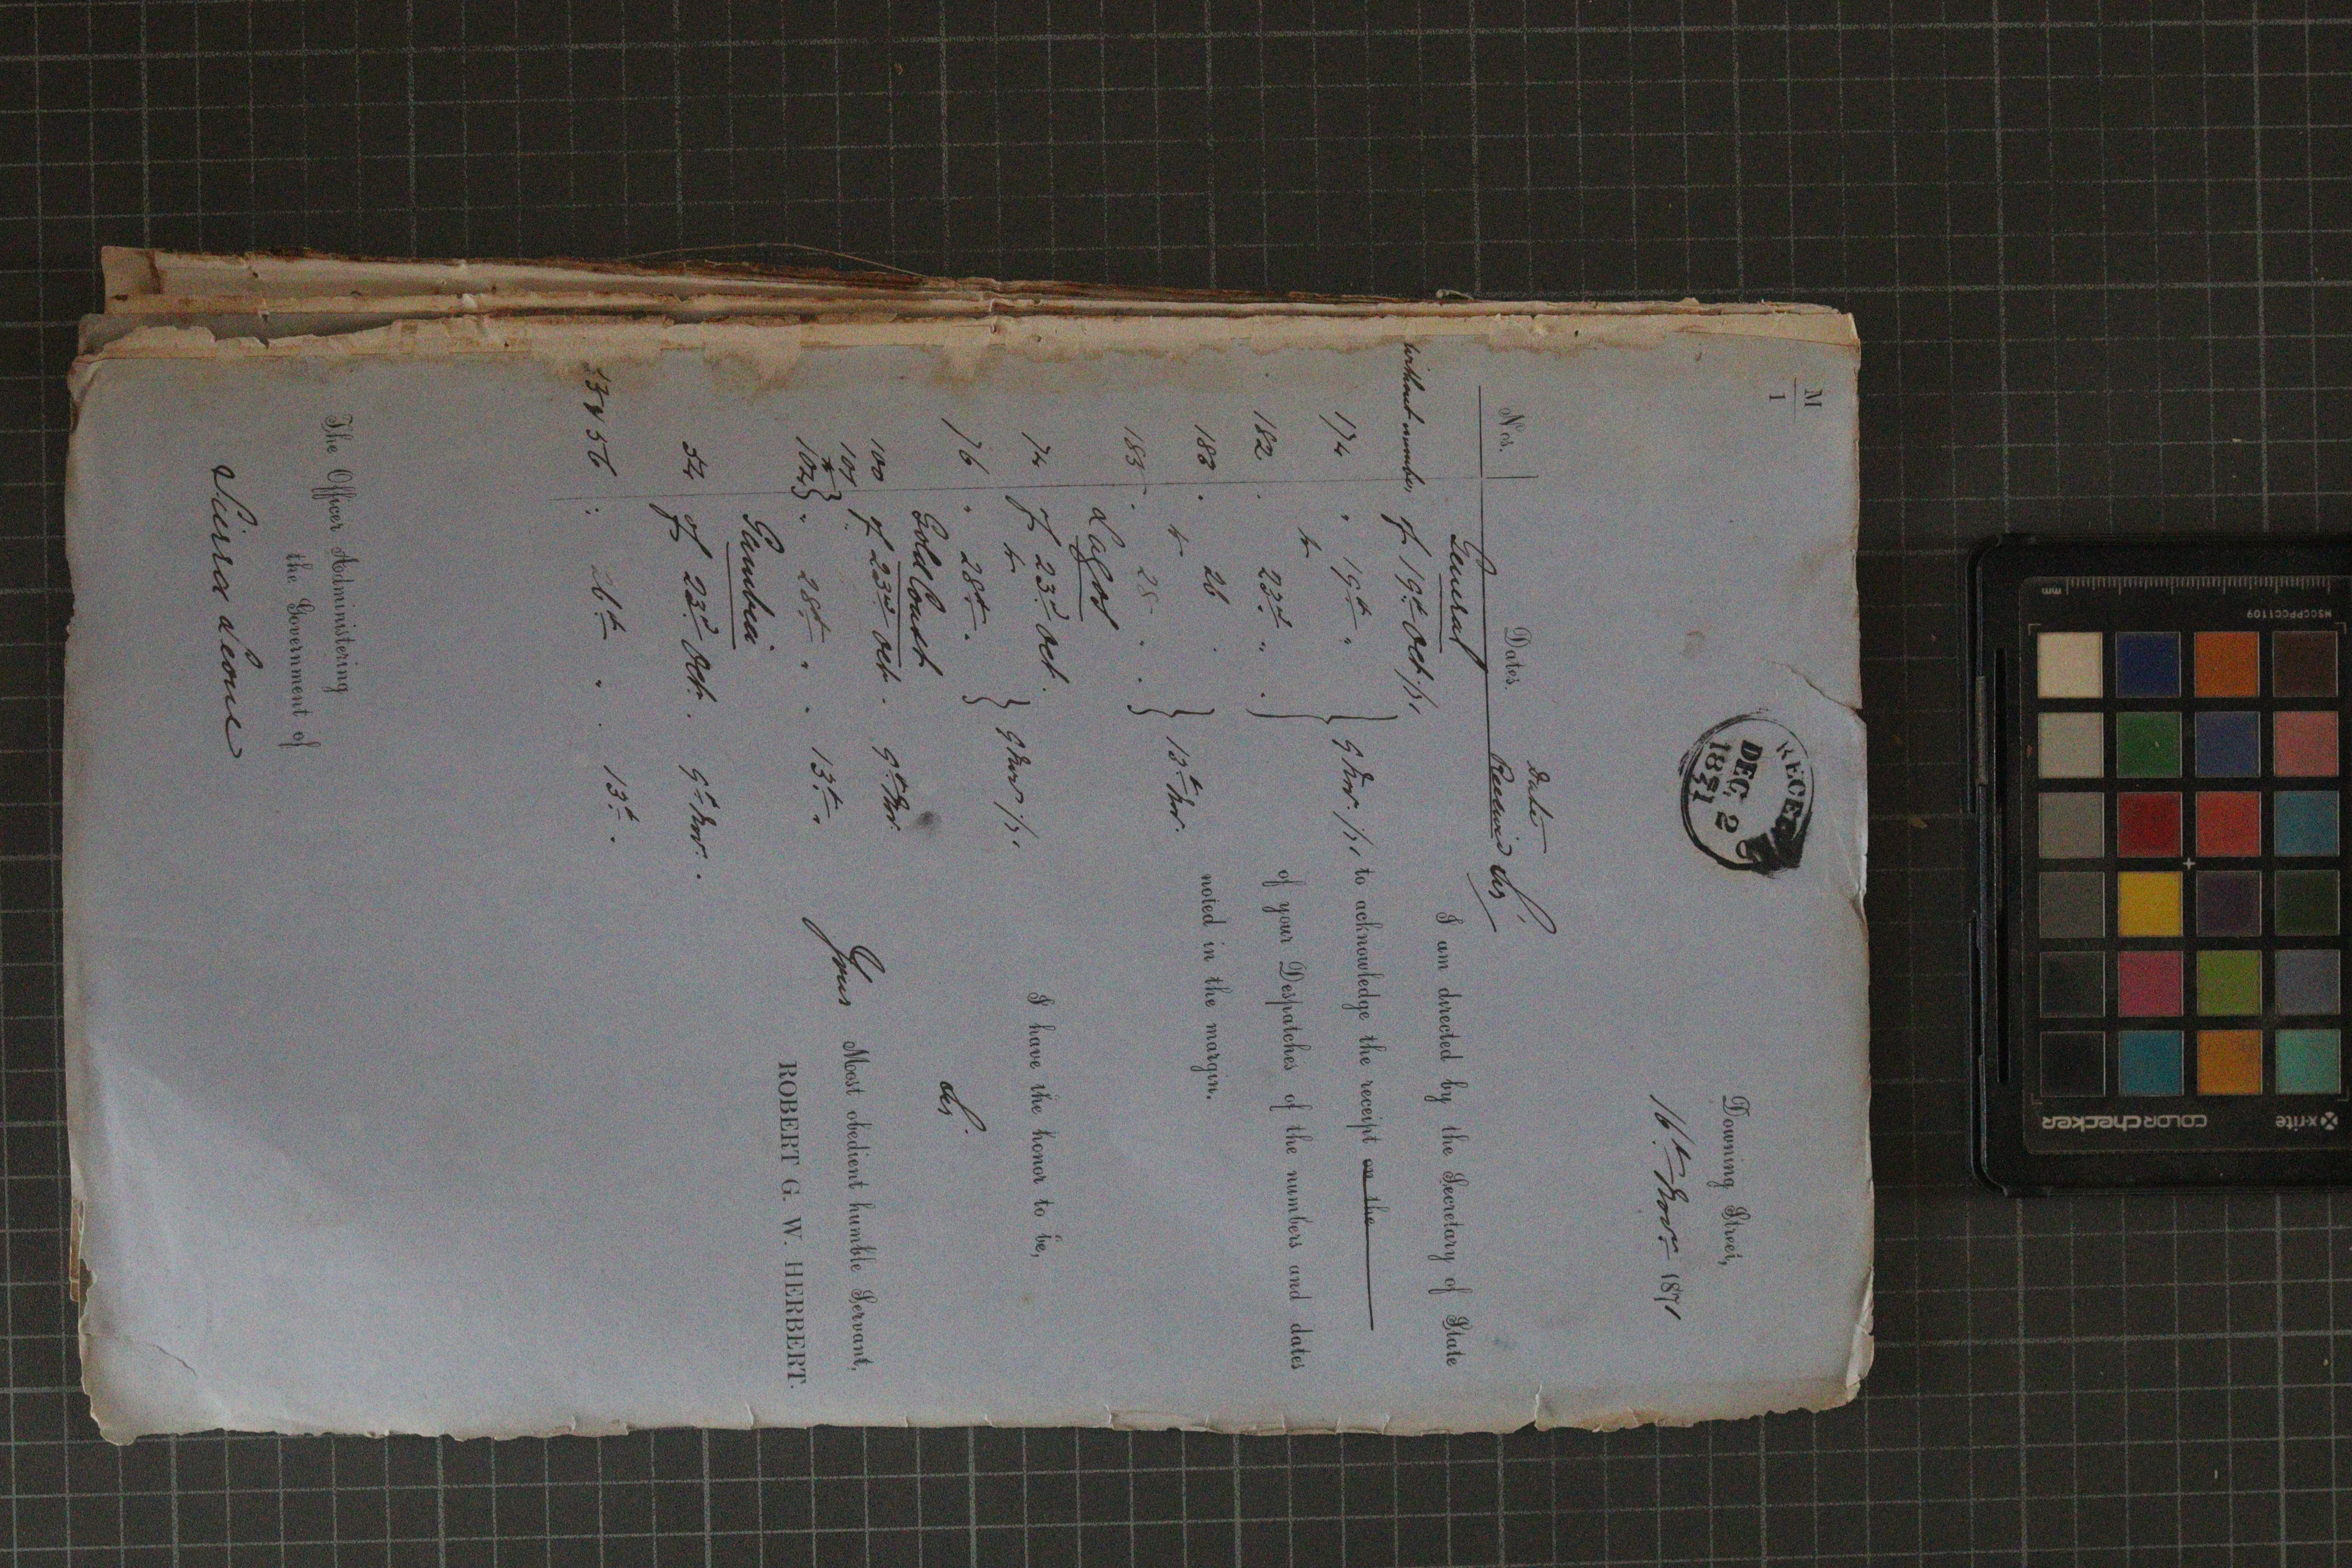 M
1
RECEIVED
DEC 2
1871
Downing Street,
16th Novr 1871
Nos. Dates. Date Received
Sir,
General
Without number, of 19th Oct. /71
174 " 19th "
182 " 23rd "
183 " 26
185 " 28 "
9 Novr /71
13th Nov.
I am directed by the Secretary of State
to acknowledge the receipt on the
of your Despatches of the numbers and dates
noted in the margin.
Lagos
74 of 23rd Oct.
76 " 28th "
9 Novr /71
I have the honor to be,
Sir
Your Most obedient humble Servant,
ROBERT G. W. HERBERT.
Gold Coast
100 of 23rd Oct. 9th Nov.
101
102 " 28th " 13th "
Gambia
54 of 23rd Oct. 9th Nov.
56 26th " 13th
The Officer Administering
the Government of
Sierra Leone
mm
MSCCPPCC1109
x-rite
colorchecker